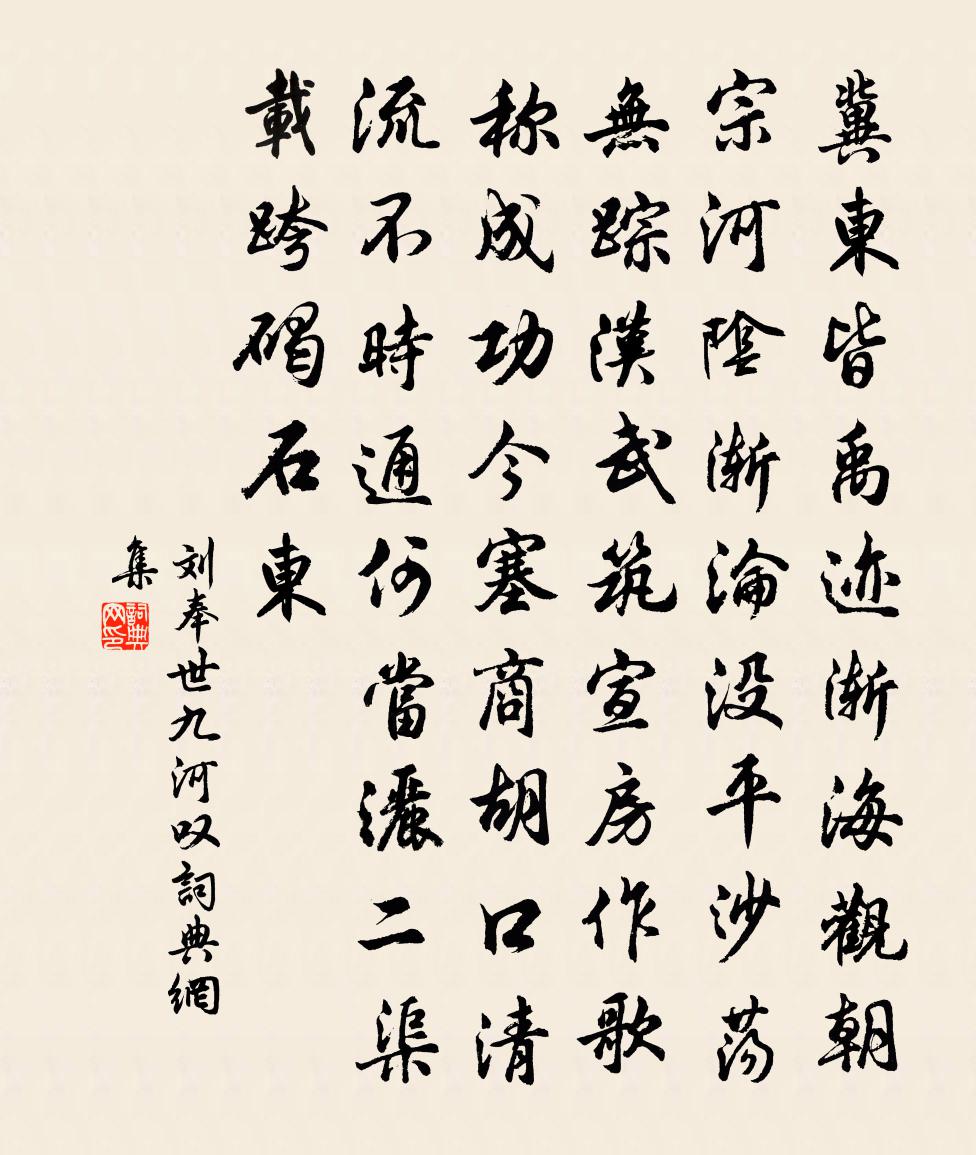 冀東皆禹迹漸海觀朝
宗河陰漸淪没平沙荡
無踪漢武筑宣房作歌
称成功今塞商胡口清
流不時通何當灑二渠
載跨碣石東
刘奉世九河叹詞典網
集
詞典网印